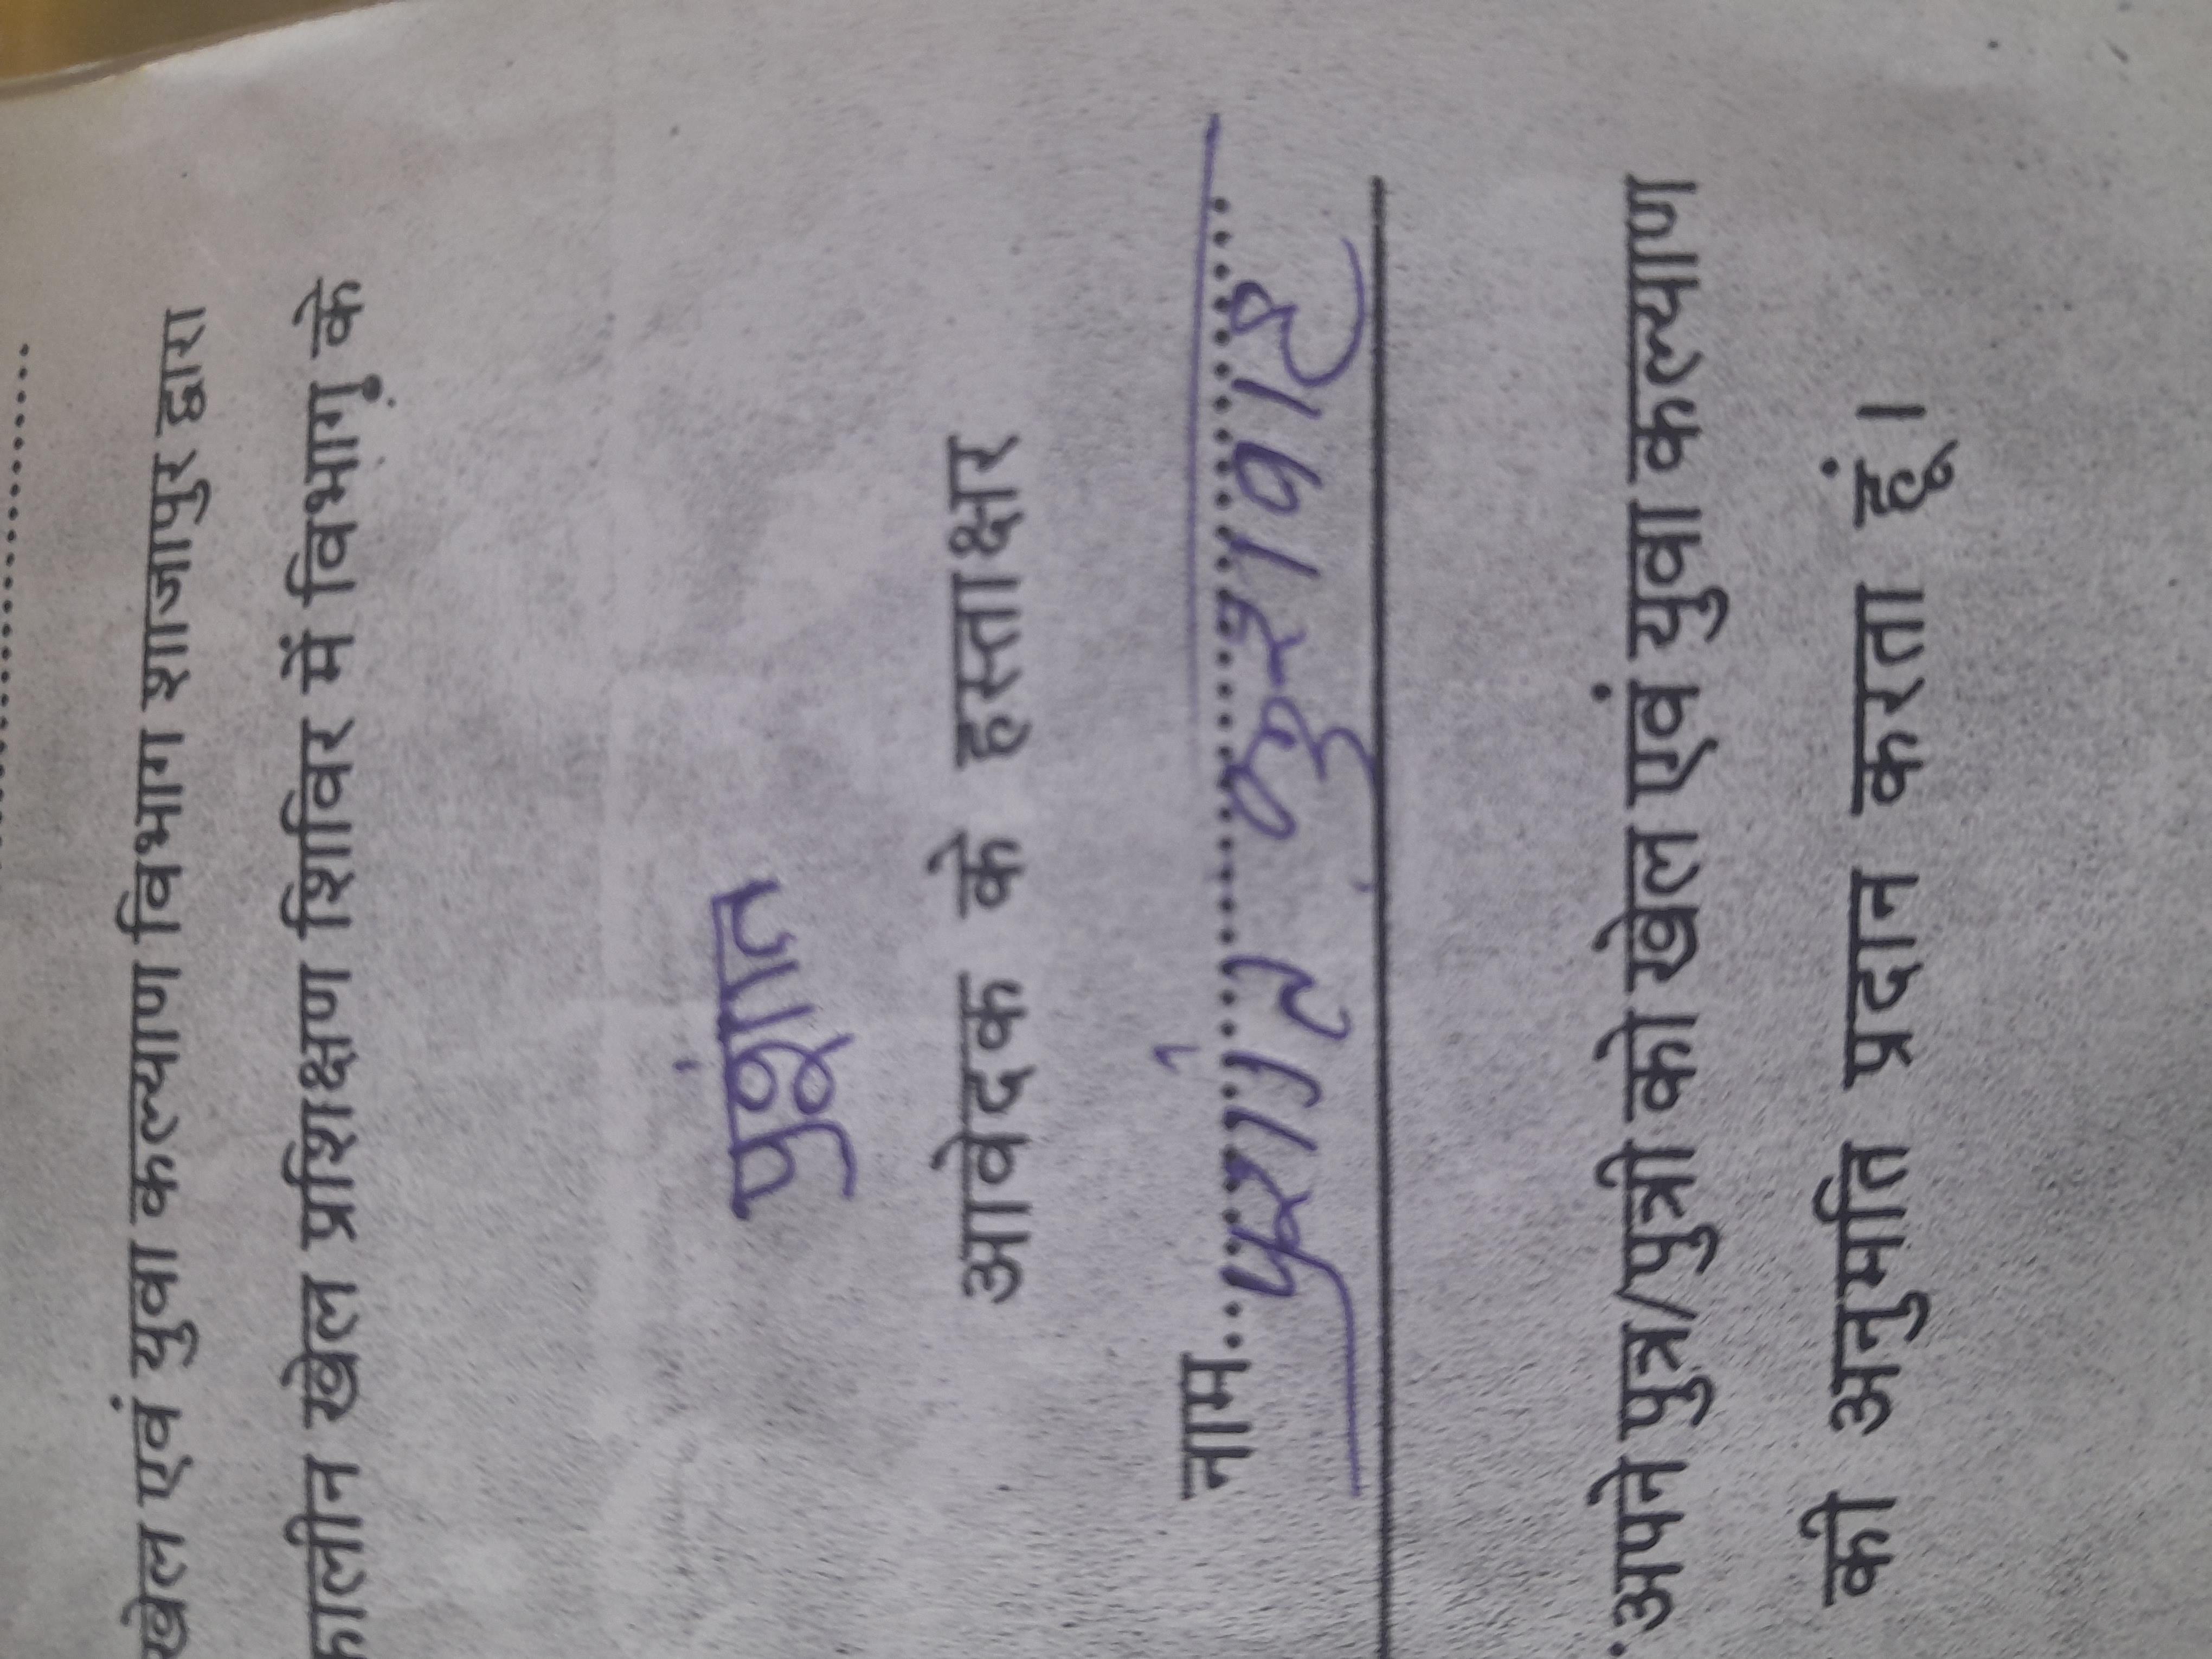 खेल एवं युवा कल्याण विभाग शाजापुर द्वारा
कालीन खेल प्रशिक्षण शिविर में विभाग के
आवेदक के हस्ताक्षार
नाम
अपने पुत्र/पुत्री को खेल एवं युवा कल्याण
की अनुमति प्रदान करता हूं।